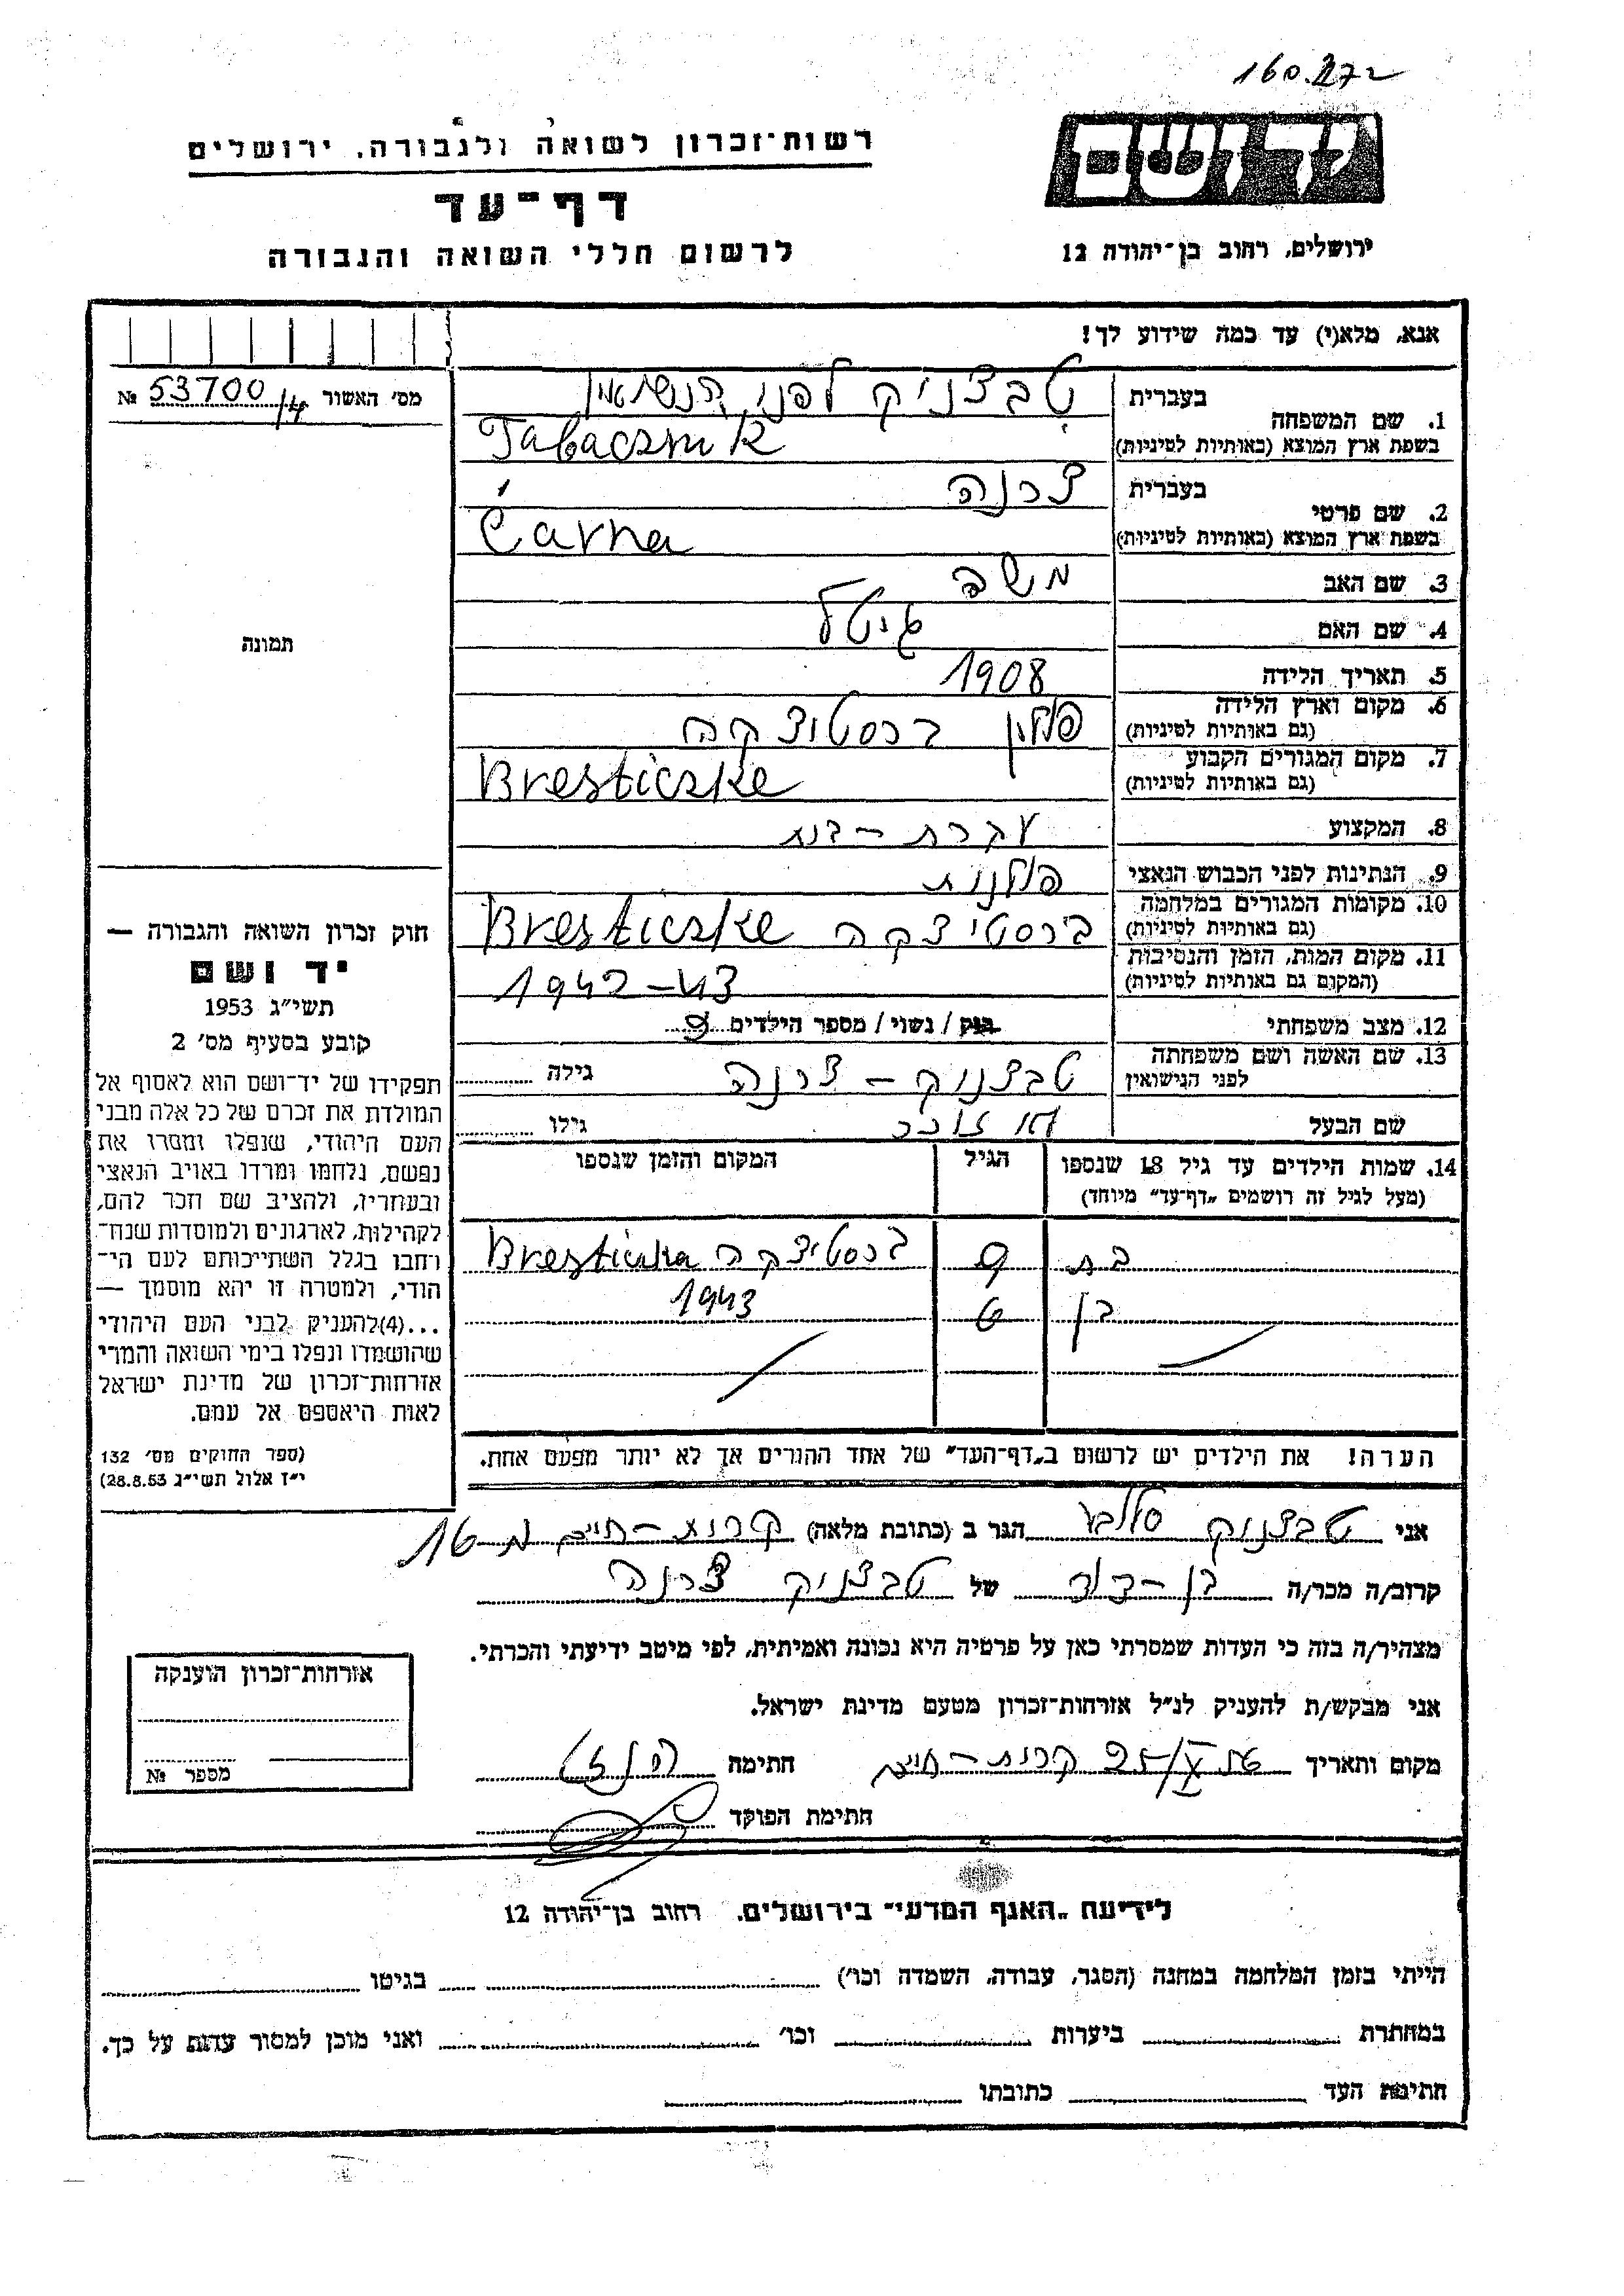 160.272
רשות־זכרון לשואה ולגבורה, ירושלים
יד ושם
דף־עד
לרשום חללי השואה והגבורה
ירושלים, רחוב בן־יהודה 12
אנא, מלא(י) עד כמה שידוע לך!
מס' האשור № 53700/14
1. שם המשפחה בעברית טבצניק לפני הנשואין
בשפת ארץ המוצא (באותיות לטיניות) Tabacznik
2. שם פרטי בעברית צרנה
בשפת ארץ המוצא (באותיות לטיניות) Čarna
3. שם האב משה
4. שם האם גיטל
תמונה
5. תאריך הלידה 1908
6. מקום וארץ הלידה (גם באותיות לטיניות) פולין ברסטיצקה
7. מקום המגורים הקבוע (גם באותיות לטיניות) Bresticzke
8. המקצוע עקרת-בית
9. הנתינות לפני הכבוש הנאצי פולנית
10. מקומות המגורים במלחמה (גם באותיות לטיניות) ברסטיצקה Bresticzke
11. מקום המות, הזמן והנסיבות (המקום גם באותיות לטיניות) 1942-43
12. מצב משפחתי רוק / נשוי / מספר הילדים
13. שם האשה ושם משפחתה לפני הנישואין טבצניק - צרנה גילה
שם הבעל גילו
14. שמות הילדים עד גיל 18 שנספו
(מעל לגיל זה רושמים "דף־עד" מיוחד)
הגיל
המקום והזמן שנספו
בת 9 ברסטיצקה Bresticzka
בן 6 1943
הערה! את הילדים יש לרשום ב"דף־העד" של אחד ההורים אך לא יותר מפעם אחת.
חוק זכרון השואה והגבורה —
יד ושם
תשי"ג 1953
קובע בסעיף מס' 2
תפקידו של יד־ושם הוא לאסוף אל
המולדת את זכרם של כל אלה מבני
העם היהודי, שנפלו ומסרו את
נפשם, נלחמו ומרדו באויב הנאצי
ובעוזריו, ולהציב שם וזכר להם,
לקהילות, לארגונים ולמוסדות שנח־
רחבו בגלל השתייכותם לעם הי־
הודי, ולמטרה זו יהא מוסמך —
...(4) להעניק לבני העם היהודי
שהושמדו ונפלו בימי השואה והמרי
אזרחות־זכרון של מדינת ישראל
לאות היאספם אל עמם.
(ספר החוקים מס' 132
י"ז אלול תשי"ג 28.8.53)
אני טבצניק הגר ב (כתובת מלאה) קרית-חיים
קרוב/ה מכר/ה בן-דוד של טבצניק צרנה
מצהיר/ה בזה כי העדות שמסרתי כאן על פרטיה היא נכונה ואמיתית, לפי מיטב ידיעתי והכרתי.
אני מבקש/ת להעניק לנ"ל אזרחות־זכרון מטעם מדינת ישראל.
מקום ותאריך קרית-חיים חתימה
חתימת הפוקד
אזרחות־זכרון הוענקה
מספר №
לידיעת "האגף המדעי" בירושלים, רחוב בן־יהודה 12
הייתי בזמן המלחמה במחנה (הסגר, עבודה, השמדה וכו') בגיטו
במחתרת ביערות וכו' ואני מוכן למסור עדות על כך.
חתימת העד כתובתו